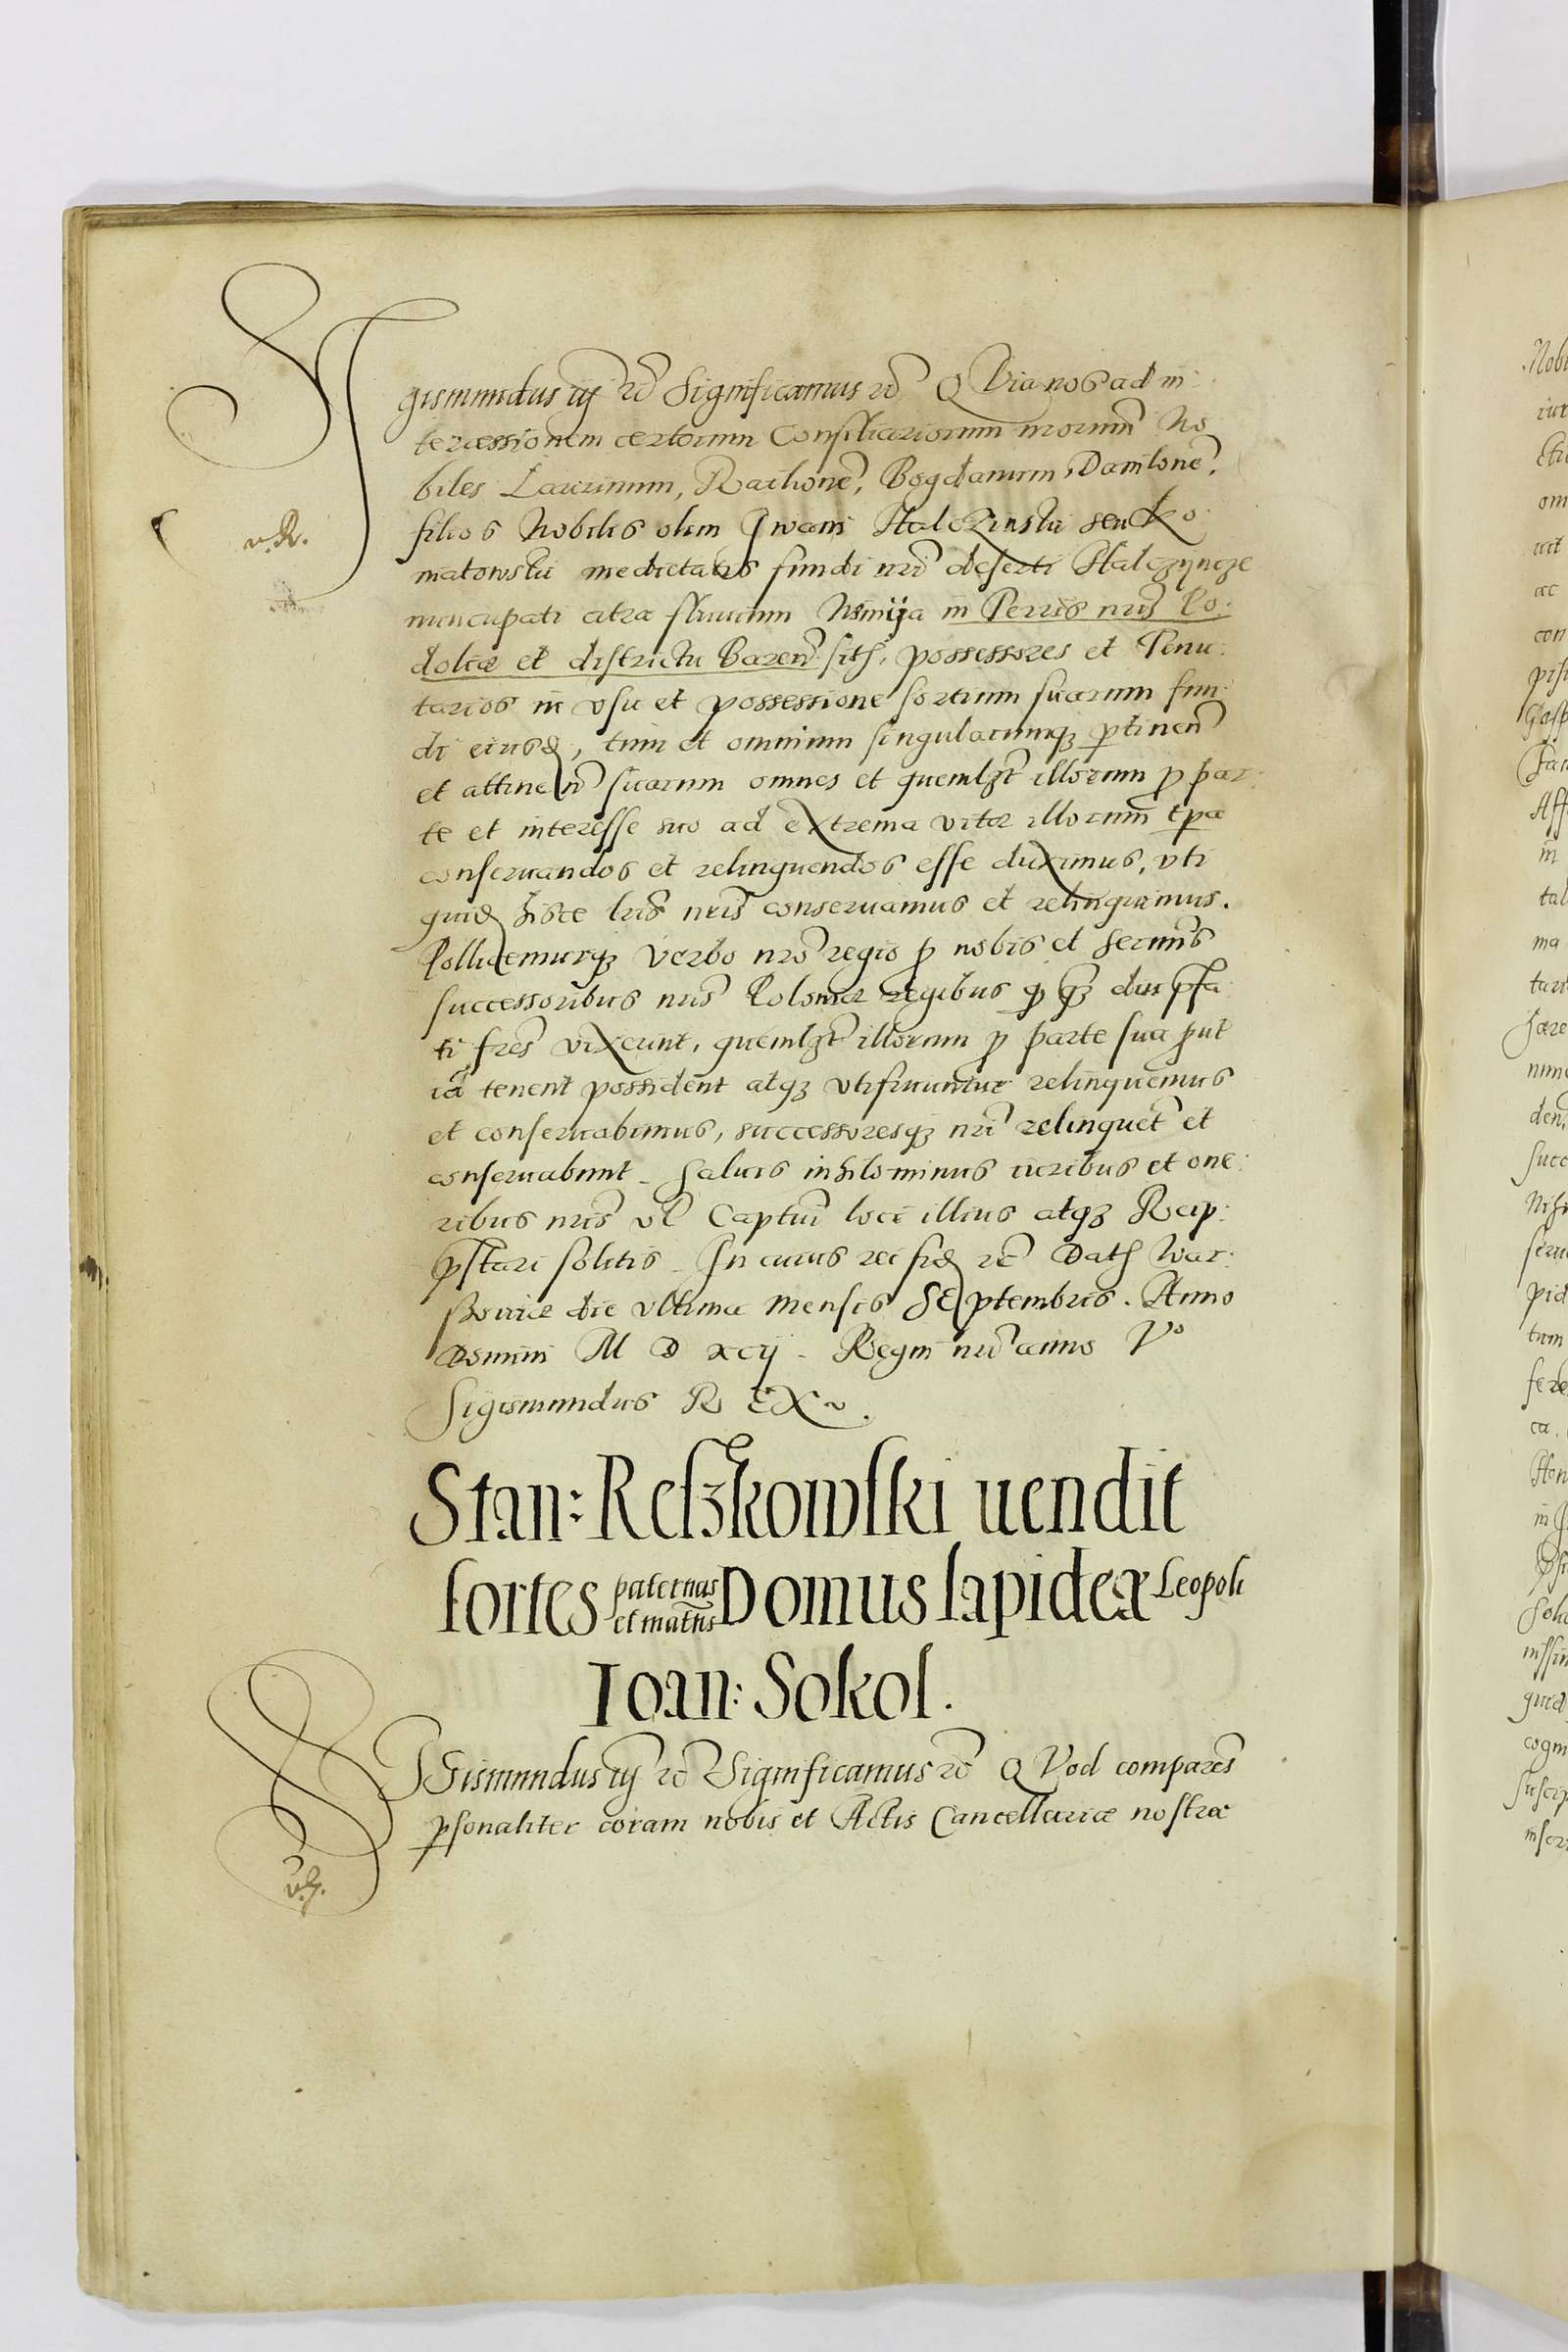 SI
gismundus iij rc̃ Significamus rc̃ QVia nos ad in:
tercessionem certorum Consiliariorum nrorum No
biles Laurinum, Racilionẽ, Bogdanum, Danilonẽ,
filios Nobilis olim Iwani Halczinski seu Ko:
matowski medietatis fundi nrĩ deserti Halczÿncze
nuncupati citra fluuium Nsmija in Terris nrĩs Po:
doliæ et districtu Bareñ: sitħ, possessores et Tenu:
tarios in vsu et possessione sortium suarum fun:
di eiusd, tum et omnium singularumq3 ptineñ
et attineñ suarum omnes et quemlzt illorum p par:
te et interesse suo ad extrema vitæ illorum tpa
conseruandos et relinquendos esse duximus, vti
quid hisce lrĩs nrĩs conseruamus et relinquimus.
Pollicemurq3 verbo nrõ regio p nobis et sermĩs
successoribus nrĩs Poloniæ regibus q q3 diu pfa
ti frẽs vixerint, quemlzt illorum p parte sua put
iã tenent possident atq3 vtifruuntur relinquemus
et conseruabimus, successoresq3 nrĩ relinquẽt et
conseruabunt. Saluis inhilominus iuribus et one:
ribus nrĩs vl Captuĩ loci illius atq3 Reip:
pstari solitis. In cuius rei fid rc̃ Datħ War:
ssouiæ die vltima mensis SEptembris. Anno
Domini M D xcij. Regni nrĩ anno Vo
Sigismundus REX.
v. R.
Stan: Reszkowski uendit
sortes paternas et matñs Domus lapideæ Leopoli
Ioan: Sokol.
SIGismundus iij rc̃ Significamus rc̃ QVod comparẽs
psonaliter coram nobis et Actis Cancellariæ nostræ